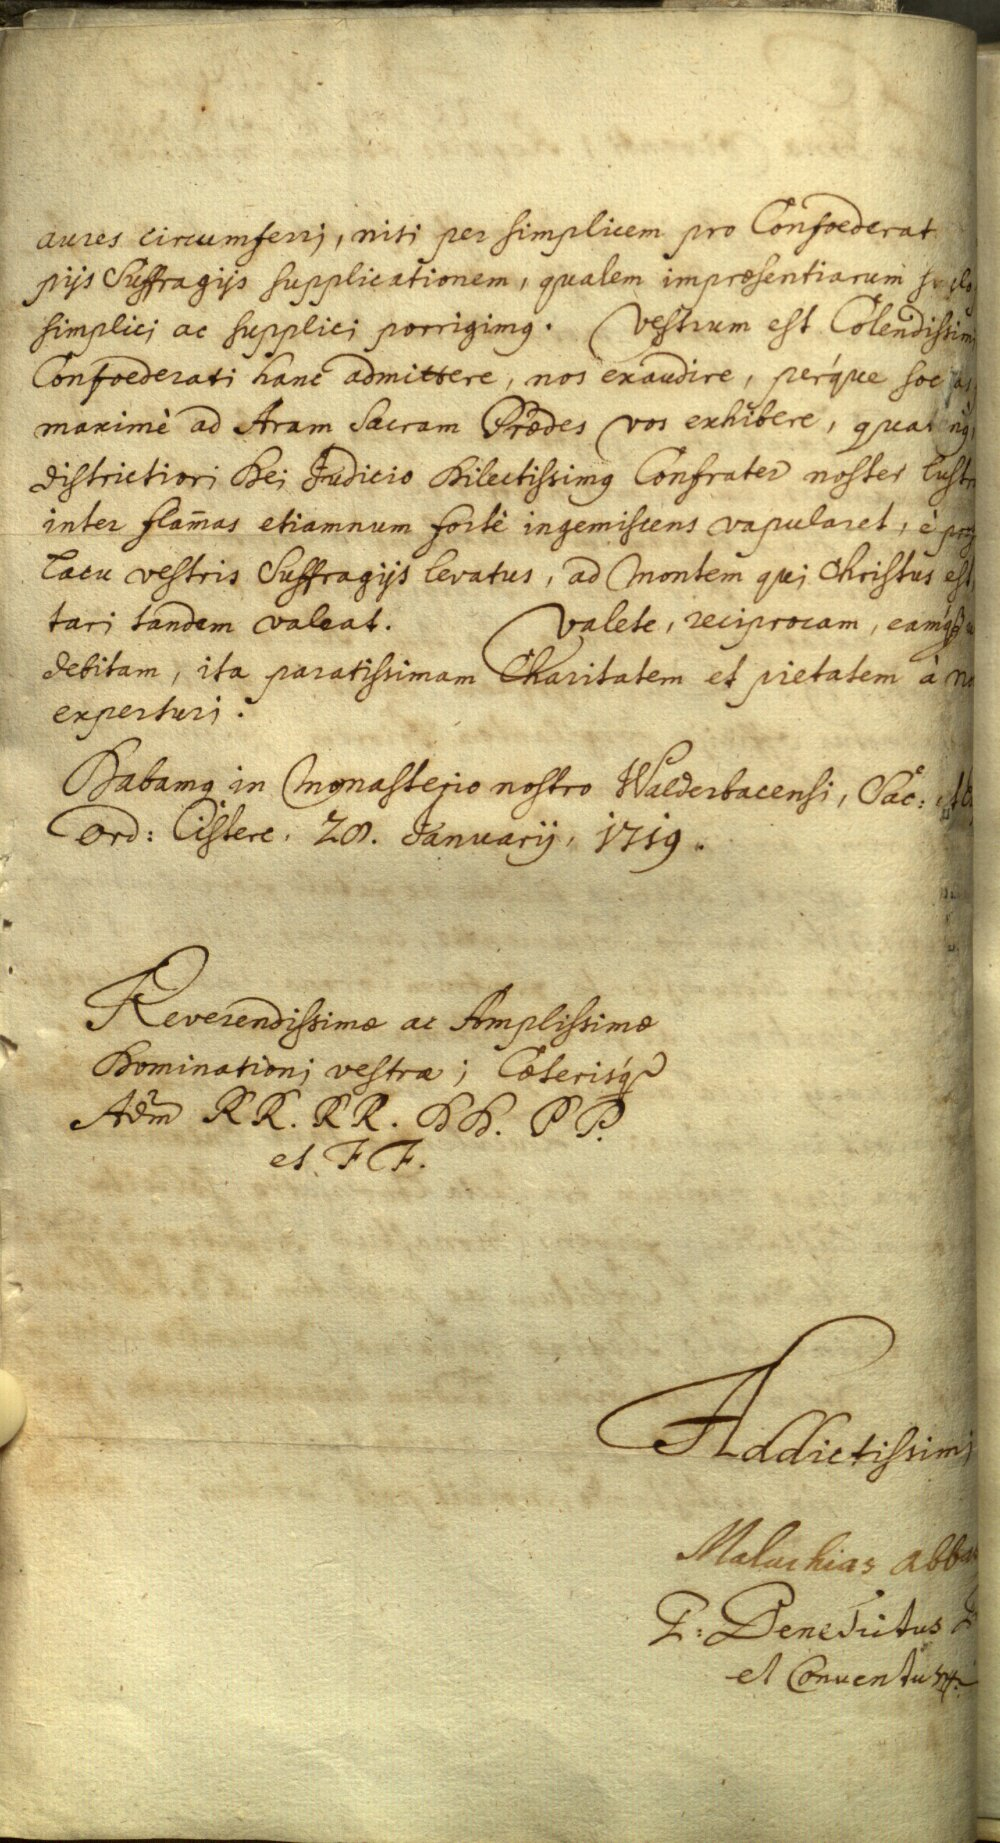 aures circumferri, nisi per simplicem pro Confoederat
pijs Suffragijs supplicationem, qualem impraesentiarum
simplici ac supplici porrigimq. Vestrum est Colendissim
Confoederati hanc admittere, nos exaudire, perq́ue hoc
maximè ad Aram Sacram Praedes vos exhibere,
districtiori Dei Judicio Dilectissimq Confrater noster
inter flam̄as etiamnum fortè ingemiscens vapularet, è
lacu vestris Suffragijs levatus, ad Montem qui Christus est
tari tandem valeat. Valete, reciprocam,
debitam, ita paratissimam Charitatem et pietatem à
experturi.
Dabamq in Monasterio nostro Walderbacensi, Sac:
Ord: Cisterc. 28. Januarij, 1719.
Reverendissimae ac Amplissimae
Dominationi vestrae; Caeterisq́
Adm̃ RR. RR. DD. PP.
et FF.
Addictissimi
Malachias abba
P: Benedictus
et Conuentus